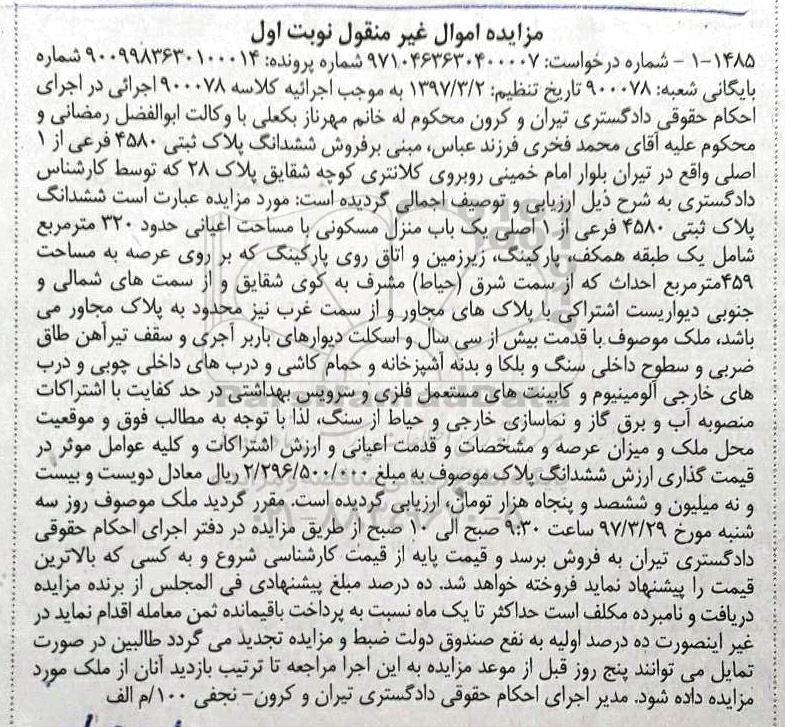 مزایده اموال غیر منقول نوبت اول
۱-۱۴۸۵ - شماره درخواست: ۹۷۱۰۴۶۳۶۳۰۴۰۰۰۰۷ شماره پرونده: ۹۰۰۹۹۸۳۶۳۰۱۰۰۰۱۴ شماره
بایگانی شعبه: ۹۰۰۰۷۸ تاریخ تنظیم: ۱۳۹۷/۳/۲ به موجب اجرائیه کلاسه ۹۰۰۰۷۸ اجرائی در اجرای
احکام حقوقی دادگستری تیران و کرون محکوم له خانم مهرناز بکعلی با وکالت ابوالفضل رمضانی و
محکوم علیه آقای محمد فخری فرزند عباس، مبنی برفروش ششدانگ پلاک ثبتی ۴۵۸۰ فرعی از ۱
اصلی واقع در تیران بلوار امام خمینی روبروی کلانتری کوچه شقایق پلاک ۲۸ که توسط کارشناس
دادگستری به شرح ذیل ارزیابی و توصیف اجمالی گردیده است: مورد مزایده عبارت است ششدانگ
پلاک ثبتی ۴۵۸۰ فرعی از ۱ اصلی یک باب منزل مسکونی با مساحت اعیانی حدود ۳۲۰ مترمربع
شامل یک طبقه همکف، پارکینگ، زیرزمین و اتاق روی پارکینگ که بر روی عرصه به مساحت
۴۵۹مترمربع احداث که از سمت شرق (حیاط) مشرف به کوی شقایق و از سمت های شمالی و
جنوبی دیواریست اشتراکی با پلاک های مجاور و از سمت غرب نیز محدود به پلاک مجاور می
باشد، ملک موصوف با قدمت بیش از سی سال و اسکلت دیوارهای باربر آجری و سقف تیرآهن طاق
ضربی و سطوح داخلی سنگ و بلکا و بدنه آشپزخانه و حمام کاشی و درب های داخلی چوبی و درب
های خارجی آلومینیوم و کابینت های مستعمل فلزی و سرویس بهداشتی در حد کفایت با اشتراکات
منصوبه آب و برق گاز و نماسازی خارجی و حیاط از سنگ، لذا با توجه به مطالب فوق و موقعیت
محل ملک و میزان عرصه و مشخصات و قدمت اعیانی و ارزش اشتراکات و کلیه عوامل موثر در
قیمت گذاری ارزش ششدانگ پلاک موصوف به مبلغ ۲/۲۹۶/۵۰۰/۰۰۰ ریال معادل دویست و بیست
و نه میلیون و ششصد و پنجاه هزار تومان، ارزیابی گردیده است. مقرر گردید ملک موصوف روز سه
شنبه مورخ ۹۷/۳/۲۹ ساعت ۹:۳۰ صبح الی ۱۰ صبح از طریق مزایده در دفتر اجرای احکام حقوقی
دادگستری تیران به فروش برسد و قیمت پایه از قیمت کارشناسی شروع و به کسی که بالاترین
قیمت را پیشنهاد نماید فروخته خواهد شد. ده درصد مبلغ پیشنهادی فی المجلس از برنده مزایده
دریافت و نامبرده مکلف است حداکثر تا یک ماه نسبت به پرداخت باقیمانده ثمن معامله اقدام نماید در
غیر اینصورت ده درصد اولیه به نفع صندوق دولت ضبط و مزایده تجدید می گردد طالبین در صورت
تمایل می توانند پنج روز قبل از موعد مزایده به این اجرا مراجعه تا ترتیب بازدید آنان از ملک مورد
مزایده داده شود. مدیر اجرای احکام حقوقی دادگستری تیران و کرون- نجفی ۱۰۰/م الف